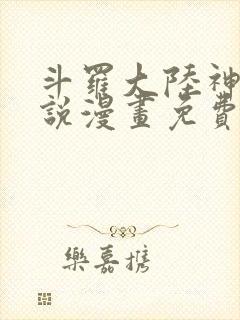 斗羅大陸神
說漫畫免費
樂嘉攜